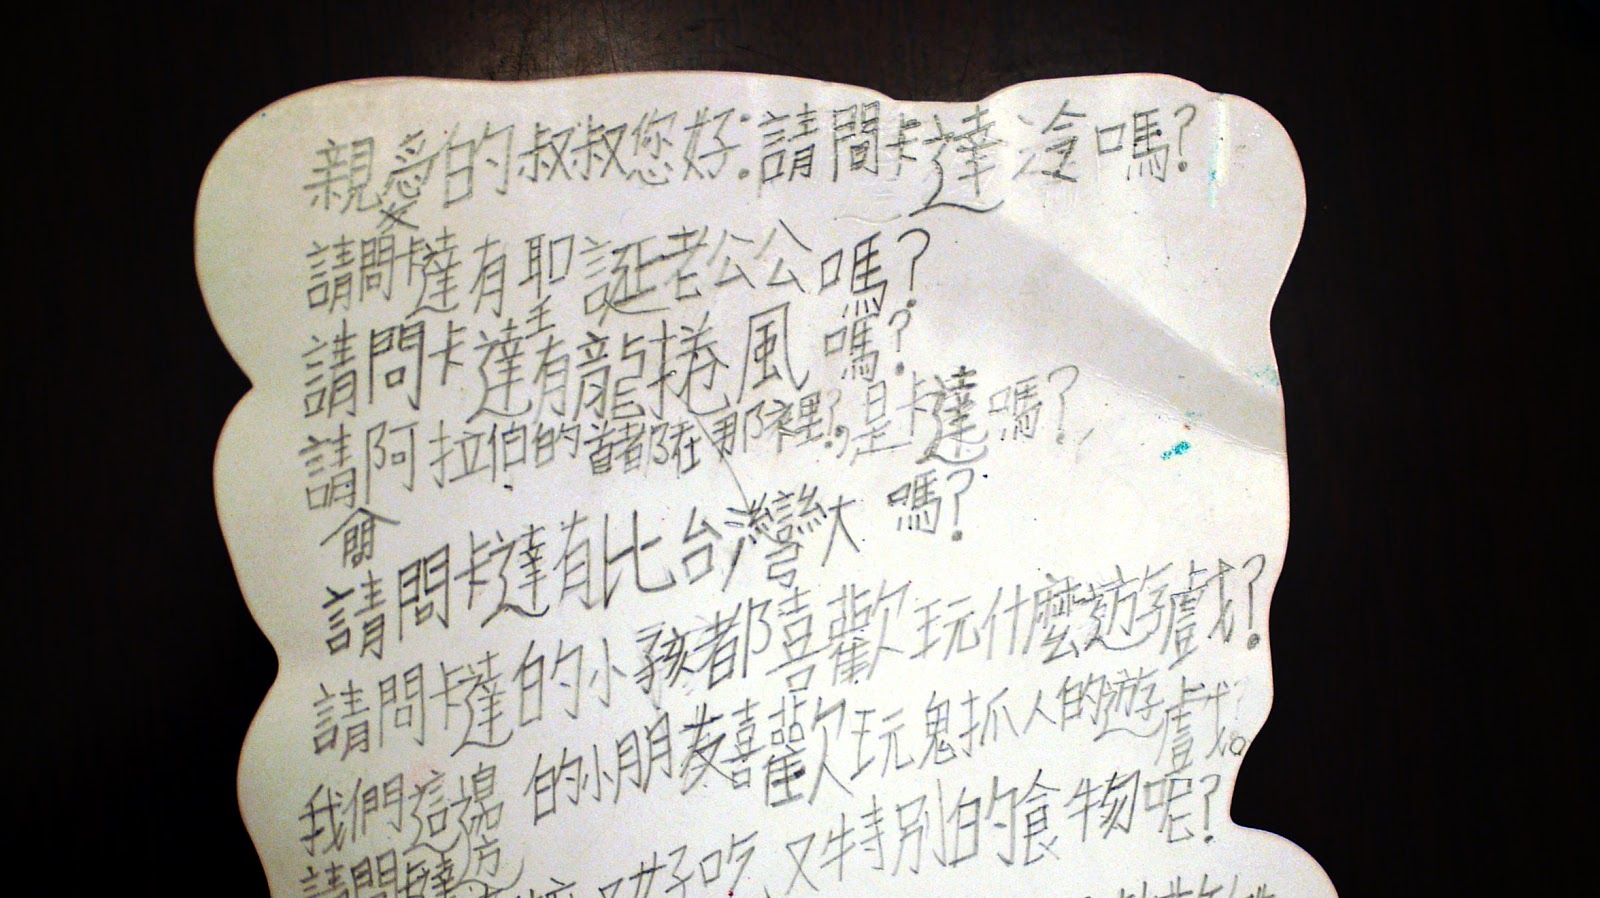 親愛的叔叔您好:請問卡達冷嗎?
請問卡達有聖誕老公公嗎?
請問卡達有龍捲風嗎?
請問阿拉伯的首都在那裡?,是卡達嗎?
請問卡達有比台灣大嗎?
請問卡達的小孩都喜歡玩什麼遊戲?
我們這邊的小朋友喜歡玩鬼抓人的遊戲。
請問卡達 好吃又特別的食物呢?